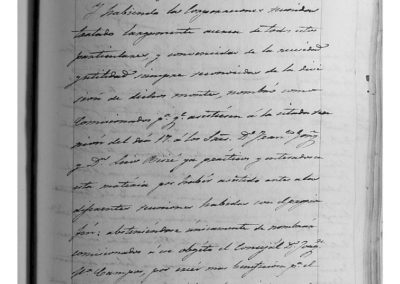 Y habiendo la Corporacion reunida
tratado largamente acerca de todos estos
particulares, y convencidos de la necesidad
y utilidad siempre reconocidas de la divi
sion de dichos montes, nombró como
Comisionados pª. qᵉ. asistiesen á la citada reu
nion del dia 17 á los Sres. Dⁿ. Juan
y Dⁿ. Luis ya prácticos y enterados en
esta materia por haber asistido antes á las
diferentes reuniones habidas con el propio
fin: absteniendose únicamente de nombrar
comisionados á su objeto el Concejal Dⁿ.
Mª. Campos, por creer mas beneficioso pª. el